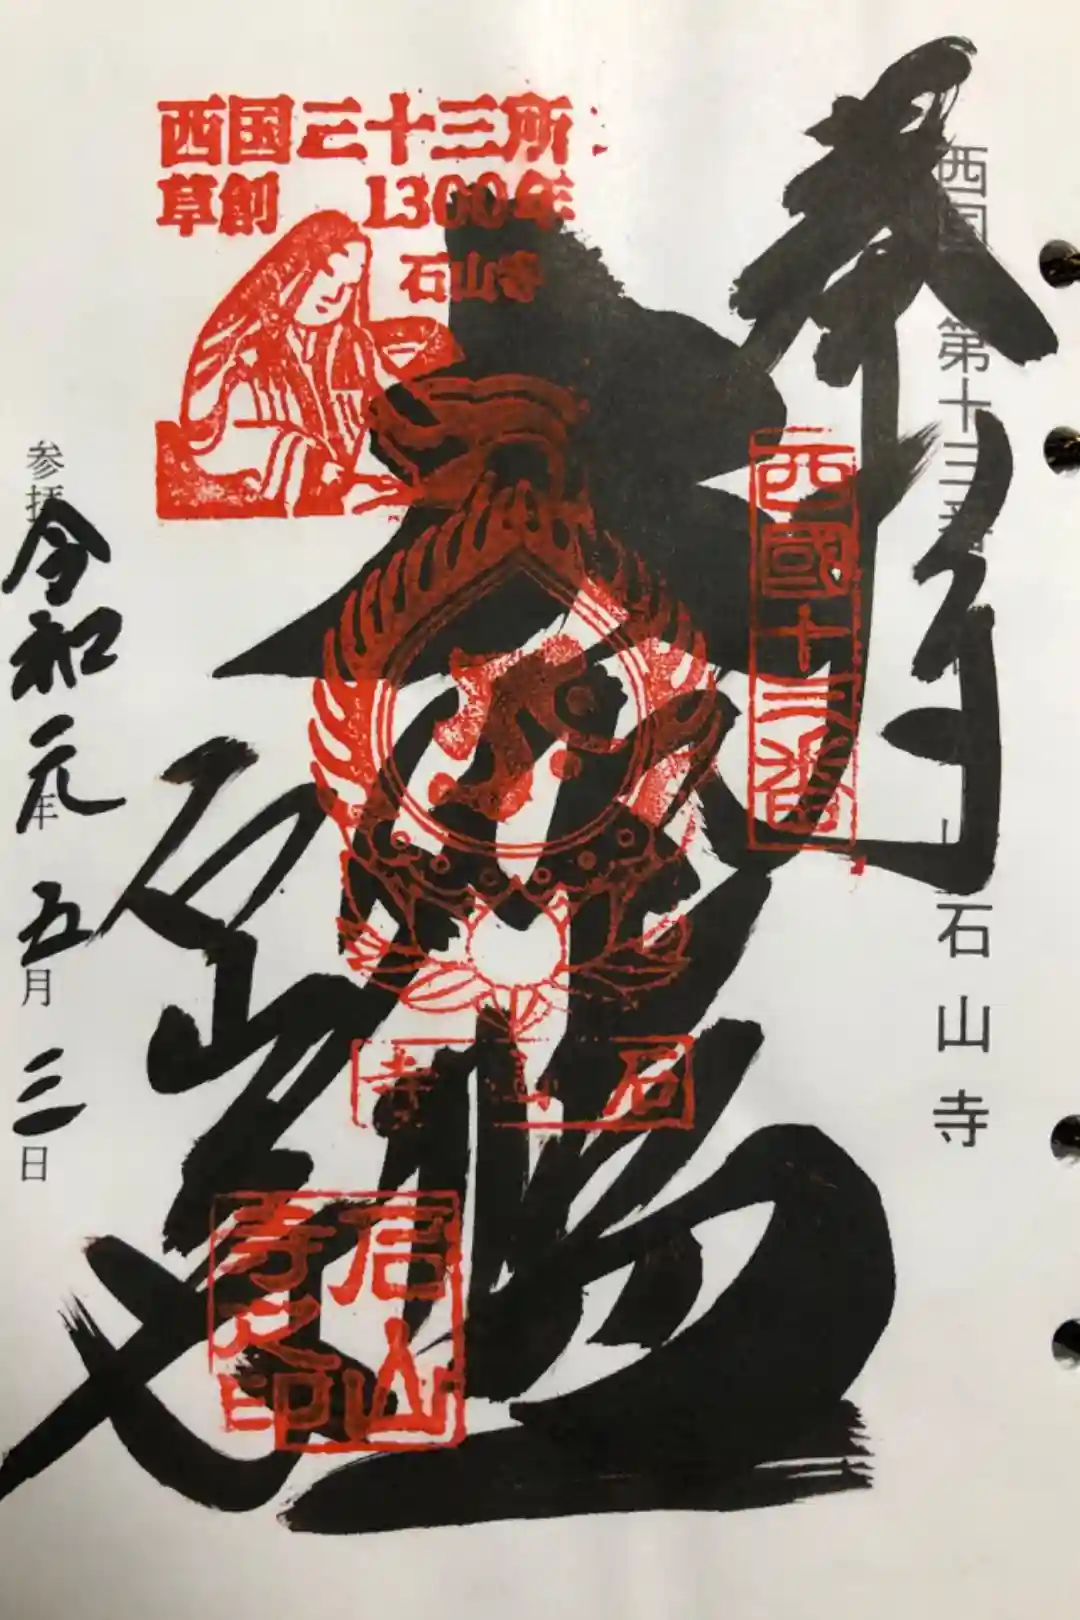 奉拝
西国第十三番
石山寺
西國十三番
西国三十三所
草創 1300年
石山寺
石山寺
石山寺
石山寺之印
参拝
令和元年五月三日